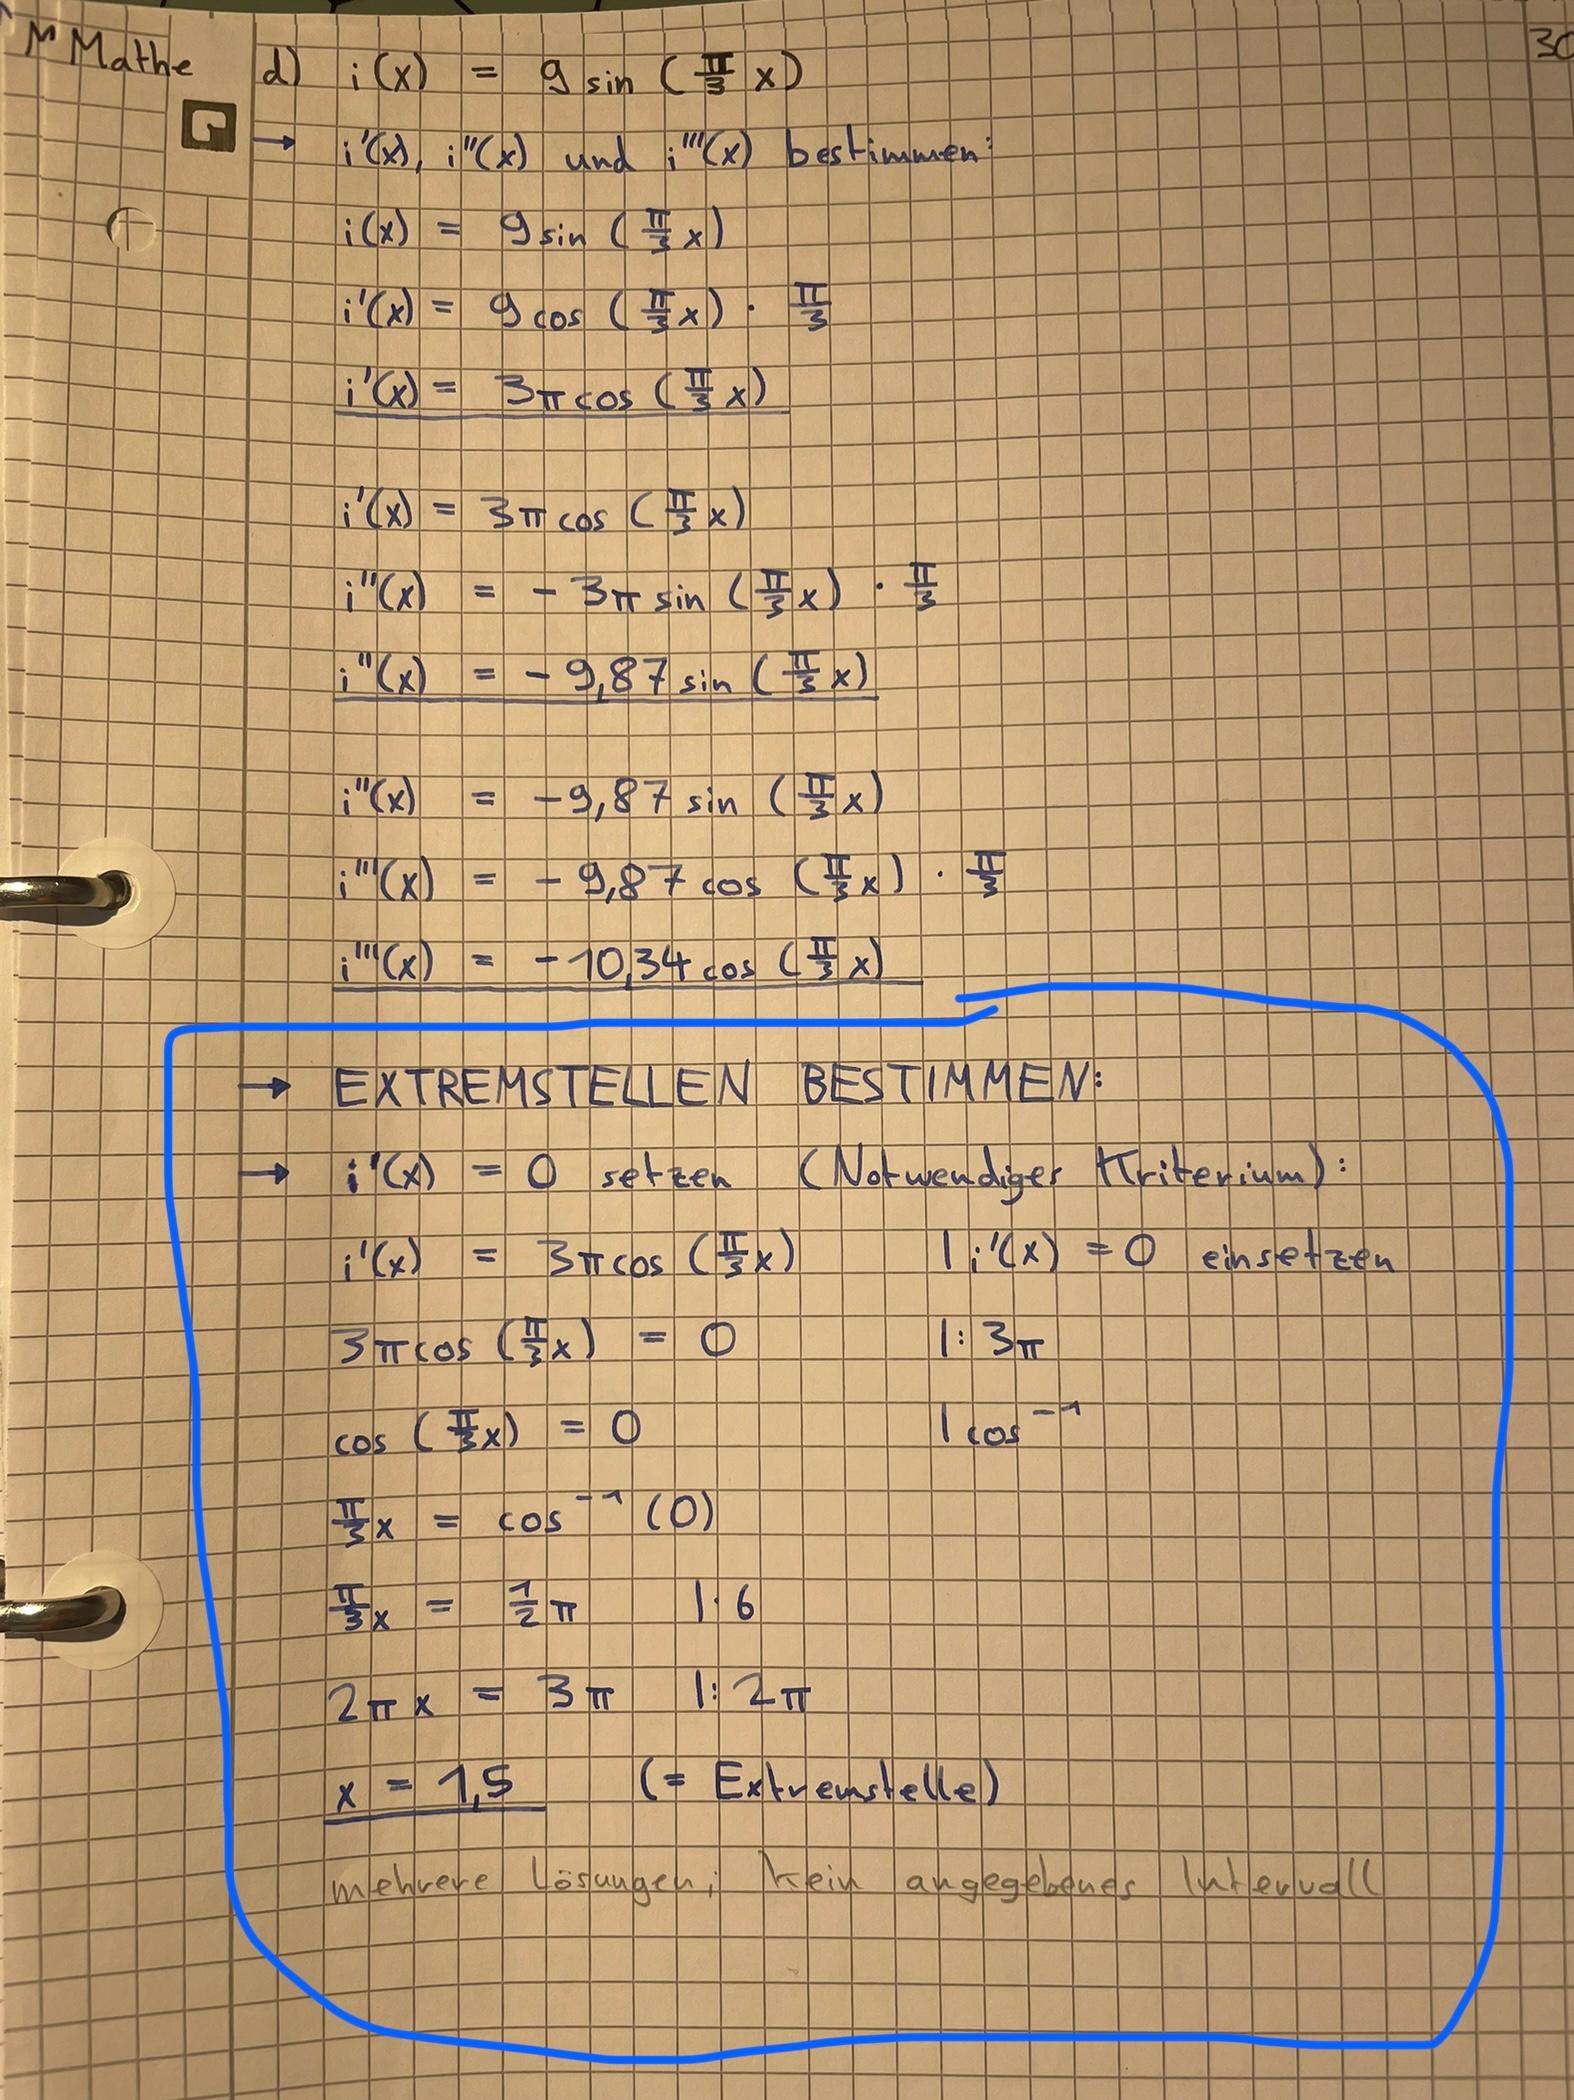 Mathe
30
d) i(x) = 9 sin (π/3 x)
→ i'(x), i''(x) und i'''(x) bestimmen:
i(x) = 9 sin (π/3 x)
i'(x) = 9 cos (π/3 x) · π/3
i'(x) = 3π cos (π/3 x)
i'(x) = 3π cos (π/3 x)
i''(x) = - 3π sin (π/3 x) · π/3
i''(x) = - 9,87 sin (π/3 x)
i''(x) = - 9,87 sin (π/3 x)
i'''(x) = - 9,87 cos (π/3 x) · π/3
i'''(x) = - 10,34 cos (π/3 x)
→ EXTREMSTELLEN BESTIMMEN:
→ i'(x) = 0 setzen (Notwendiges Kriterium):
i'(x) = 3π cos (π/3 x) | i'(x) = 0 einsetzen
3π cos (π/3 x) = 0 | : 3π
cos (π/3 x) = 0 | cos⁻¹
π/3 x = cos⁻¹ (0)
π/3 x = 1/2 π | · 6
2π x = 3π | : 2π
x = 1,5 (= Extremstelle)
mehrere Lösungen; kein angegebenes Intervall